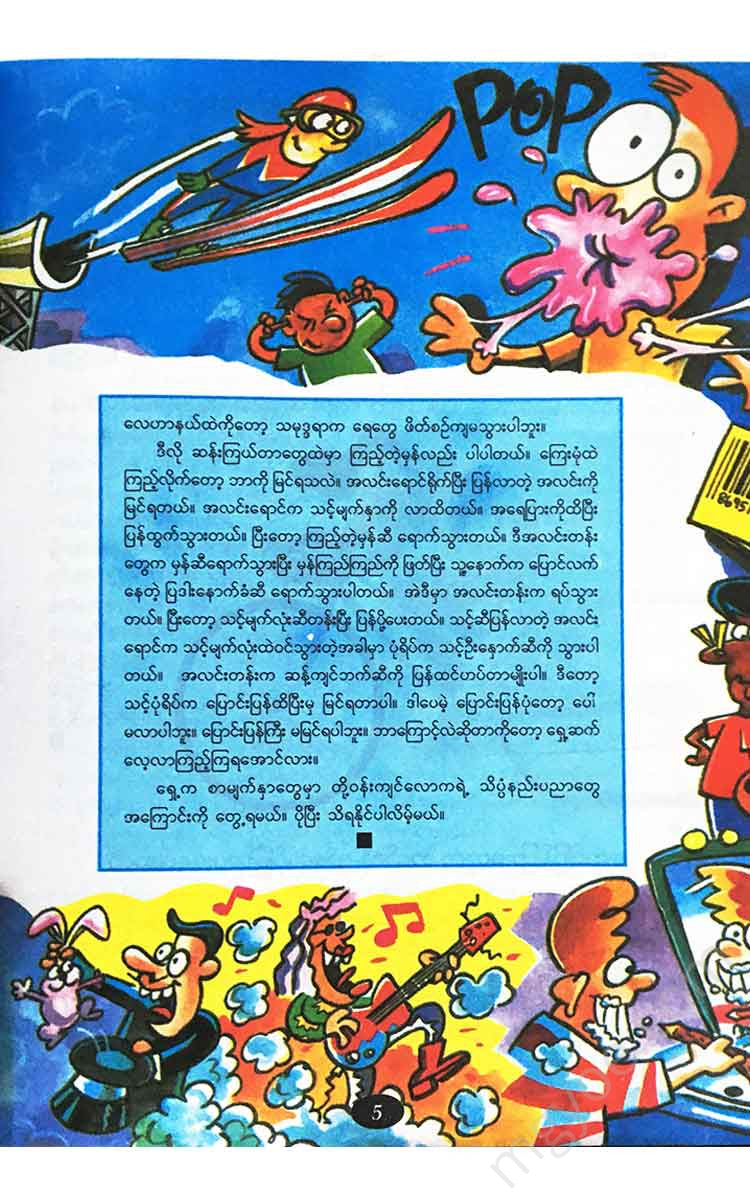 POP
လေဟာနယ်ထဲကိုတော့ သမုဒ္ဒရာက ရေတွေ ဖိတ်စဉ်ကျမသွားပါဘူး။
ဒီလို ဆန်းကြယ်တာတွေထဲမှာ ကြည့်တဲ့မှန်လည်း ပါပါတယ်။ ကြေးမုံထဲ
ကြည့်လိုက်တော့ ဘာကို မြင်ရသလဲ။ အလင်းရောင်ရိုက်ပြီး ပြန်လာတဲ့ အလင်းကို
မြင်ရတယ်။ အလင်းရောင်က သင့်မျက်နှာကို လာထိတယ်။ အရေပြားကိုထိပြီး
ပြန်ထွက်သွားတယ်။ ပြီးတော့ ကြည့်တဲ့မှန်ဆီ ရောက်သွားတယ်။ ဒီအလင်းတန်း
တွေက မှန်ဆီရောက်သွားပြီး မှန်ကြည်ကြည်ကို ဖြတ်ပြီး သူ့နောက်က ပြောင်လက်
နေတဲ့ ပြဒါးနောက်ခံဆီ ရောက်သွားပါတယ်။ အဲဒီမှာ အလင်းတန်းက ရပ်သွား
တယ်။ ပြီးတော့ သင့်မျက်လုံးဆီတန်းပြီး ပြန်ပို့ပေးတယ်။ သင့်ဆီပြန်လာတဲ့ အလင်း
ရောင်က သင့်မျက်လုံးထဲဝင်သွားတဲ့အခါမှာ ပုံရိပ်က သင့်ဦးနှောက်ဆီကို သွားပါ
တယ်။ အလင်းတန်းက ဆန့်ကျင်ဘက်ဆီကို ပြန်ထင်ဟပ်တာမျိုးပါ။ ဒီတော့
သင့်ပုံရိပ်က ပြောင်းပြန်ထိပြီးမှ မြင်ရတာပါ။ ဒါပေမဲ့ ပြောင်းပြန်ပုံတော့ ပေါ်
မလာပါဘူး။ ပြောင်းပြန်ကြီး မမြင်ရပါဘူး။ ဘာကြောင့်လဲဆိုတာကိုတော့ ရှေ့ဆက်
လေ့လာကြည့်ကြရအောင်လား။
ရှေ့က စာမျက်နှာတွေမှာ တို့ဝန်းကျင်လောကရဲ့ သိပ္ပံနည်းပညာတွေ
အကြောင်းကို တွေ့ရမယ်။ ပိုပြီး သိရနိုင်ပါလိမ့်မယ်။
5